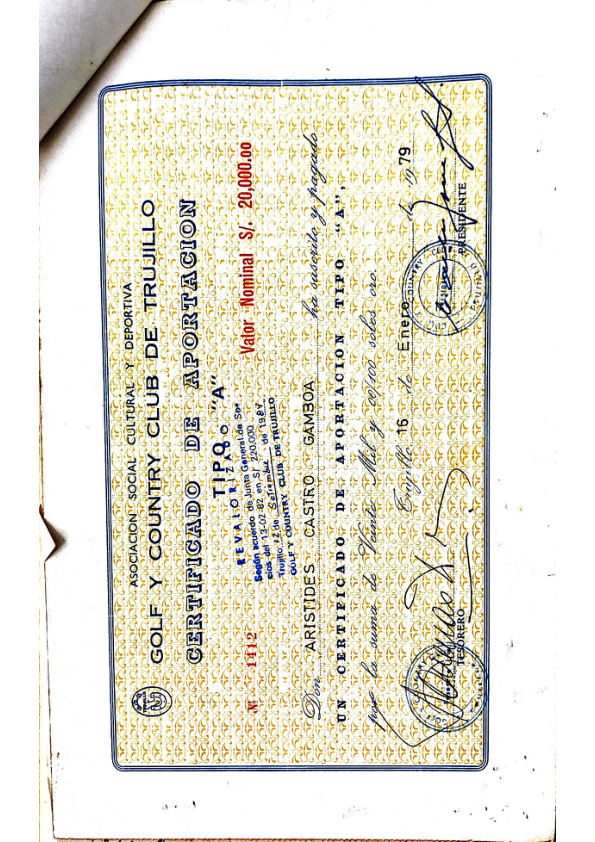 ASOCIACION SOCIAL CULTURAL Y DEPORTIVA
GOLF Y COUNTRY CLUB DE TRUJILLO
CERTIFICADO DE APORTACION
TIPO "A"
REVALORIZADO
Según acuerdo de Junta General de So-
cios del 13-02-82 en S/. 220,000
Trujillo 12 de Setiembre de 1984
GOLF Y COUNTRY CLUB DE TRUJILLO
Nº 1412
Valor Nominal S/. 20,000.00
Don ARISTIDES CASTRO GAMBOA ha suscrito y pagado
UN CERTIFICADO DE APORTACION TIPO "A",
por la suma de Veinte Mil y 00/00 soles oro.
Trujillo 16 de Enero de 1979
TESORERO
PRESIDENTE